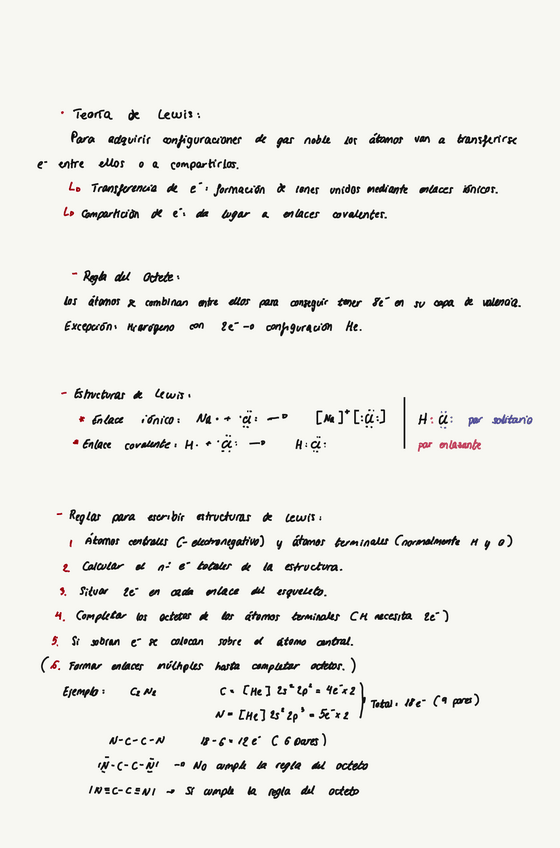 · Teoría de Lewis:
Para adquirir configuraciones de gas noble los átomos van a transferirse
e⁻ entre ellos o a compartirlos.
↳ Transferencia de e⁻: formación de iones unidos mediante enlaces iónicos.
↳ Compartición de e⁻: da lugar a enlaces covalentes.
- Regla del Octete:
Los átomos se combinan entre ellos para conseguir tener 8e⁻ en su capa de valencia.
Excepción: Hidrógeno con 2e⁻ → configuración He.
- Estructuras de Lewis:
* Enlace iónico: Na· + ·C̈l̤: → [Na]⁺ [:C̈l̤:] H:C̈l̤: par solitario
* Enlace covalente: H· + ·C̈l̤: → H:C̈l̤: par enlazante
- Reglas para escribir estructuras de Lewis:
1 Átomos centrales (- electronegativo) y átomos terminales (normalmente H y O)
2. Calcular el nº e⁻ totales de la estructura.
3. Situar 2e⁻ en cada enlace del esqueleto.
4. Completar los octetos de los átomos terminales (H necesita 2e⁻)
5. Si sobran e⁻ se colocan sobre el átomo central.
(6. Formar enlaces múltiples hasta completar octetos.)
Ejemplo: C₂N₂ C = [He] 2s² 2p² = 4e⁻x2
N = [He] 2s² 2p³ = 5e⁻x2 Total: 18e⁻ (9 pares)
N-C-C-N 18-6=12 e⁻ (6 pares)
|N̤̈-C-C-N̤̈| → No cumple la regla del octeto
|N≡C-C≡N| → Sí cumple la regla del octeto